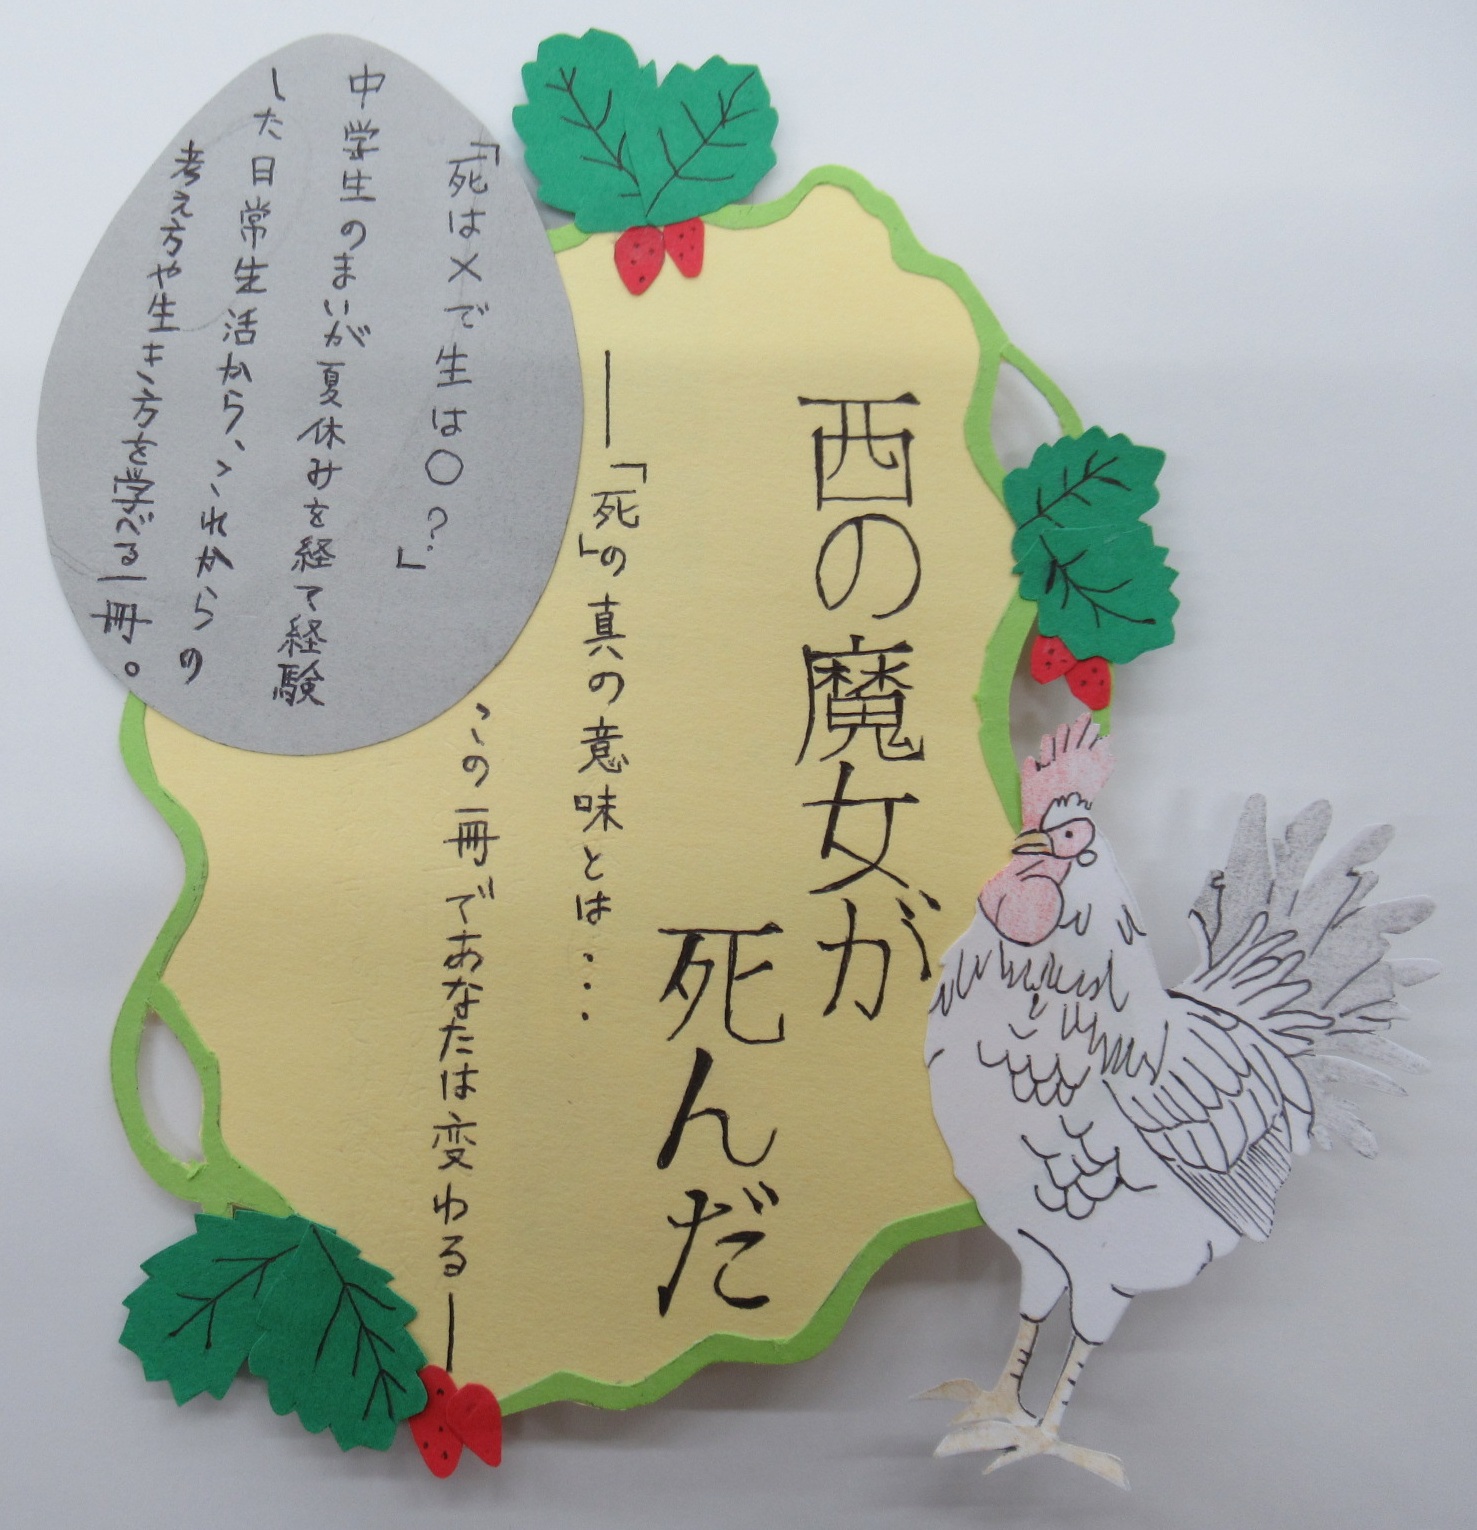 西の魔女が
死んだ
――「死」の真の意味とは・・・
この一冊であなたは変わる――
「死は×で生は〇？」
中学生のまいが夏休みを経て経験
した日常生活から、これからの
考え方や生き方を学べる一冊。